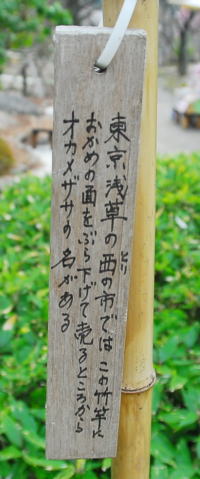 東京浅草の酉の市ではこの竹竿に
おかめの面をぶら下げて売るところから
オカメザサの名がある